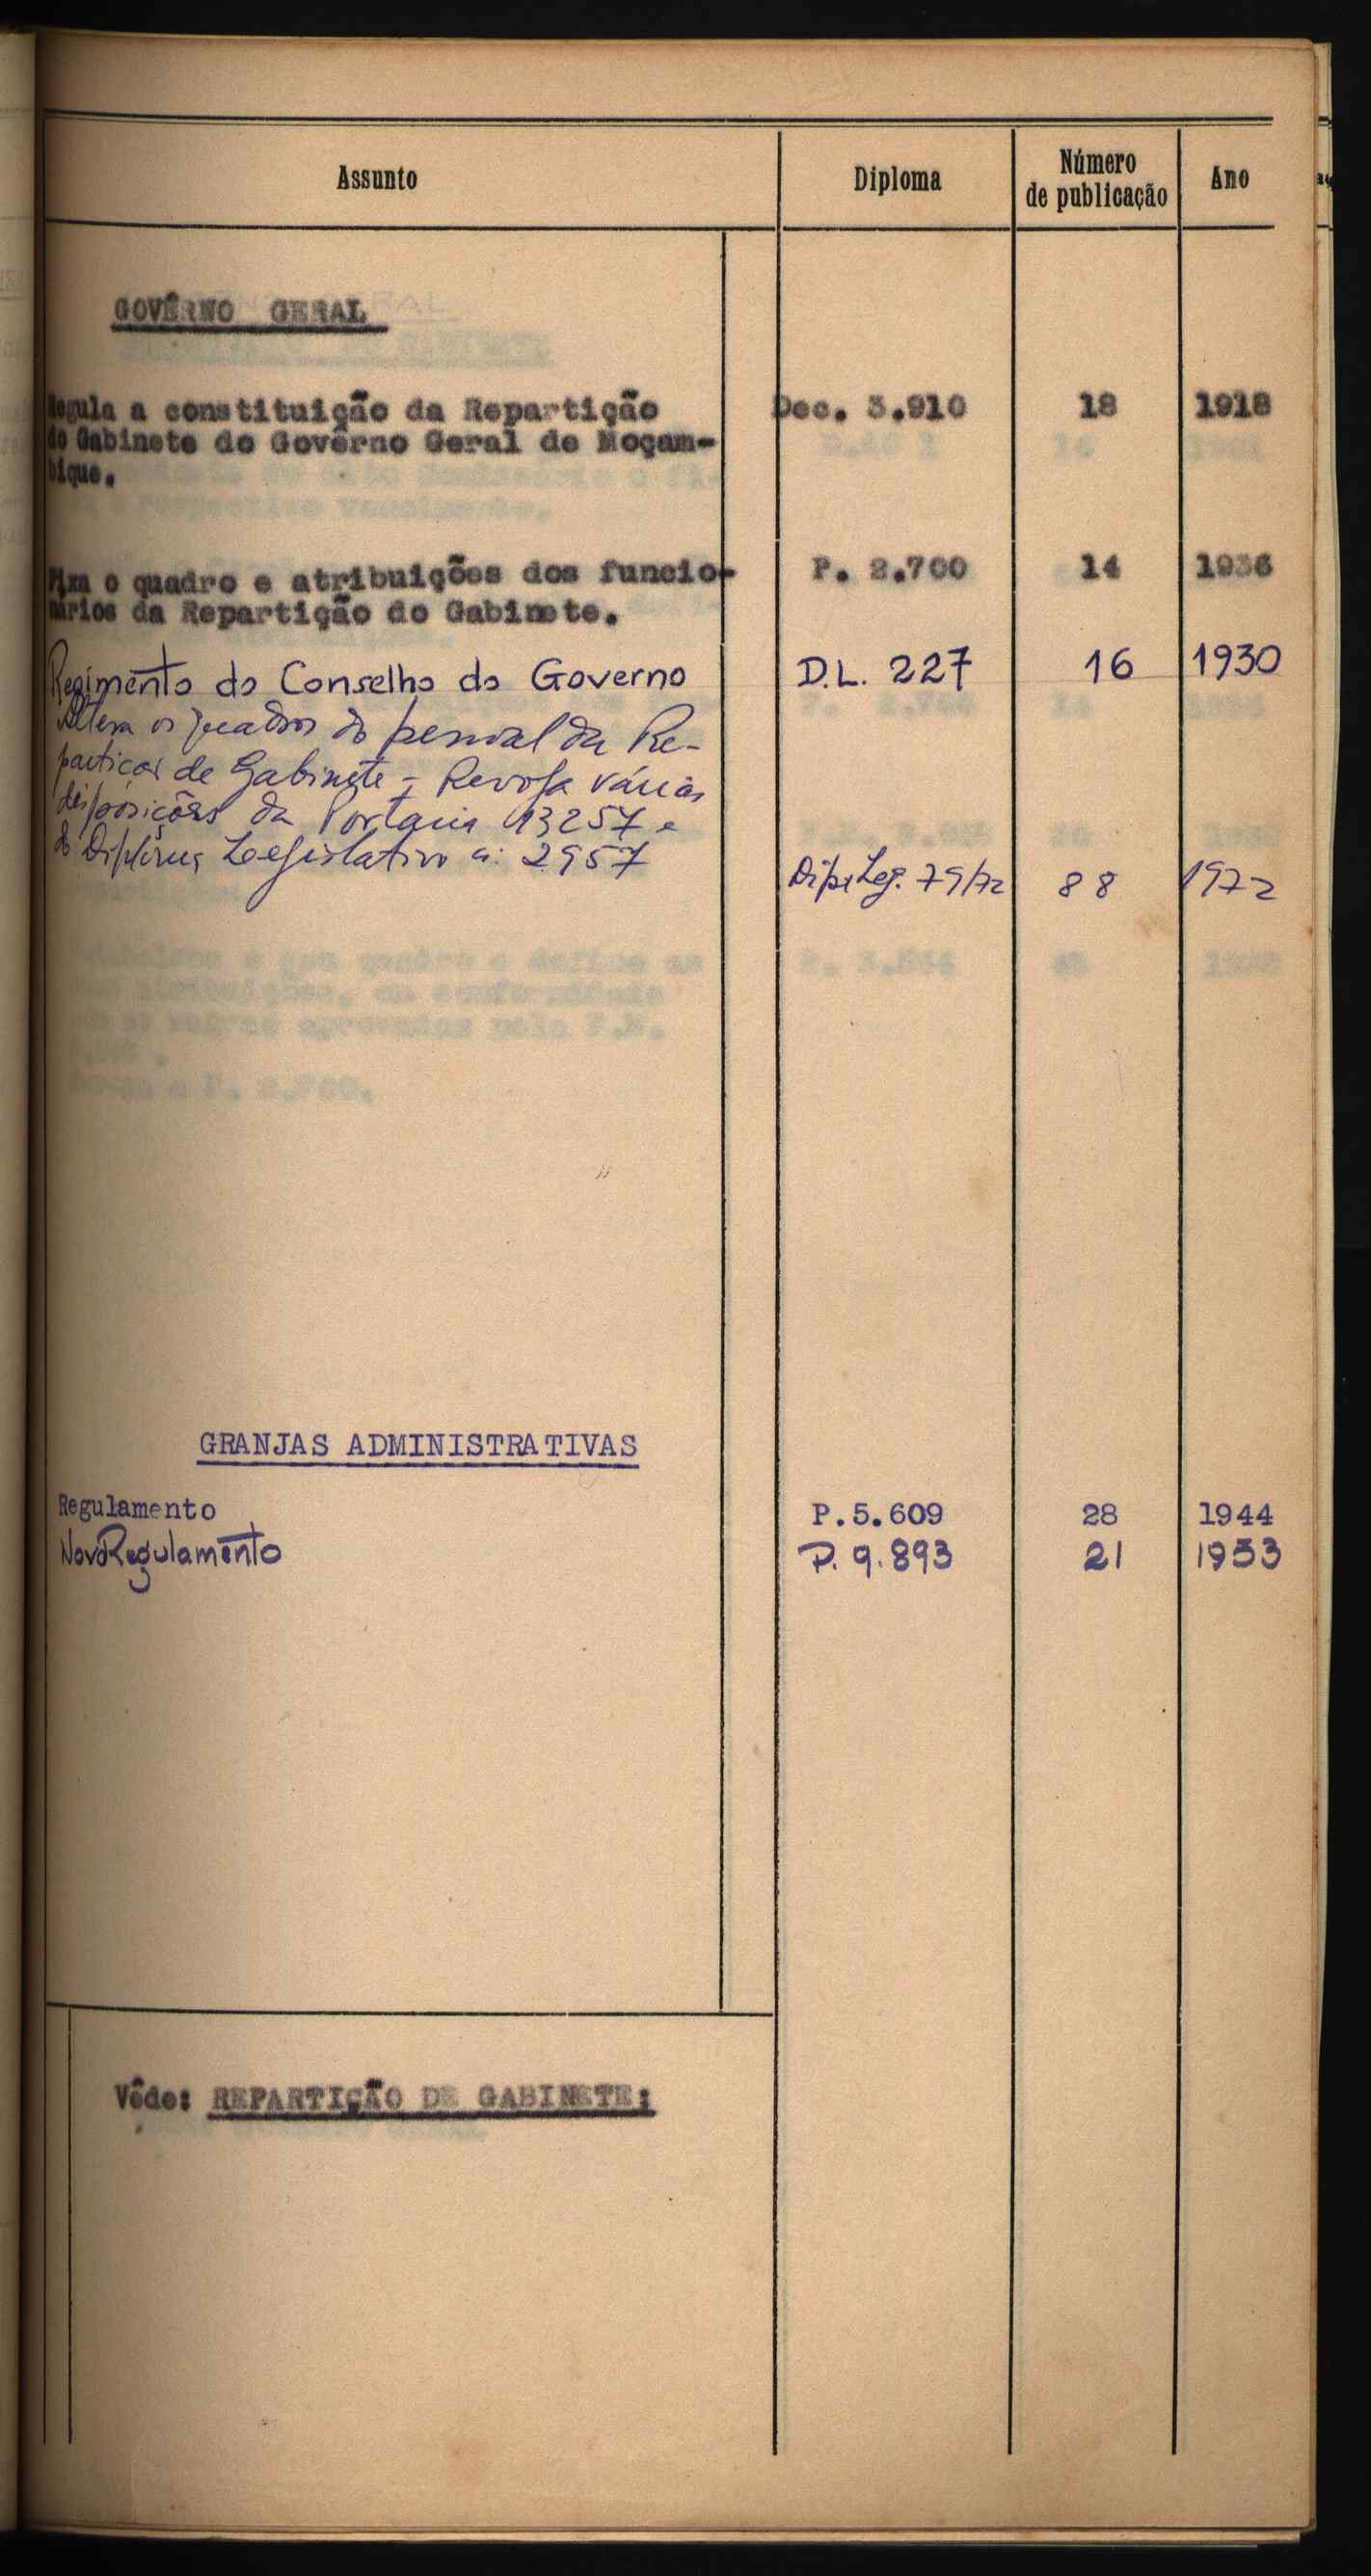 Assunto Diploma Número de publicação Ano
GOVÊRNO GERAL
Regula a constituição da Repartição Dec. 3.910 18 1918
do Gabinete do Govêrno Geral de Moçam-
bique.
Fixa o quadro e atribuições dos funcio- P. 2.700 14 1936
nários da Repartição do Gabinete.
Regimento do Conselho do Governo D.L. 227 16 1930
Altera os quadros do pessoal da Re-
partição de Gabinete - Revoga várias
disposições da Portaria 13257 e
do Diploma Legislativo n. 2957 Dip. Leg. 79/72 88 1972
GRANJAS ADMINISTRATIVAS
Regulamento P.5.609 28 1944
Novo Regulamento P. 9.893 21 1953
Vêde: REPARTIÇÃO DE GABINETE: